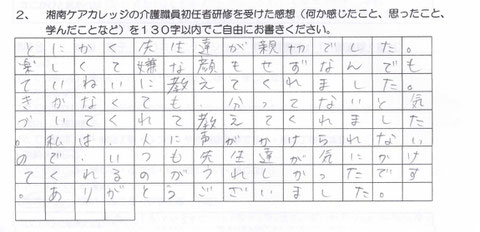 2、 湘南ケアカレッジの介護職員初任者研修を受けた感想（何か感じたこと、思ったこと、
学んだことなど）を１３０字以内でご自由にお書きください。
とにかく先生達が親切でした。
楽しくて嫌な顔もせずなんでも
ていねいに教えてくれました。
きかなくても、分ってないと気
づいてくれて教えてくれました
。私は、人に声がかけられない
ので、いつも先生達が気にかけ
てくれるのがうれしかったです
。ありがとうございました。